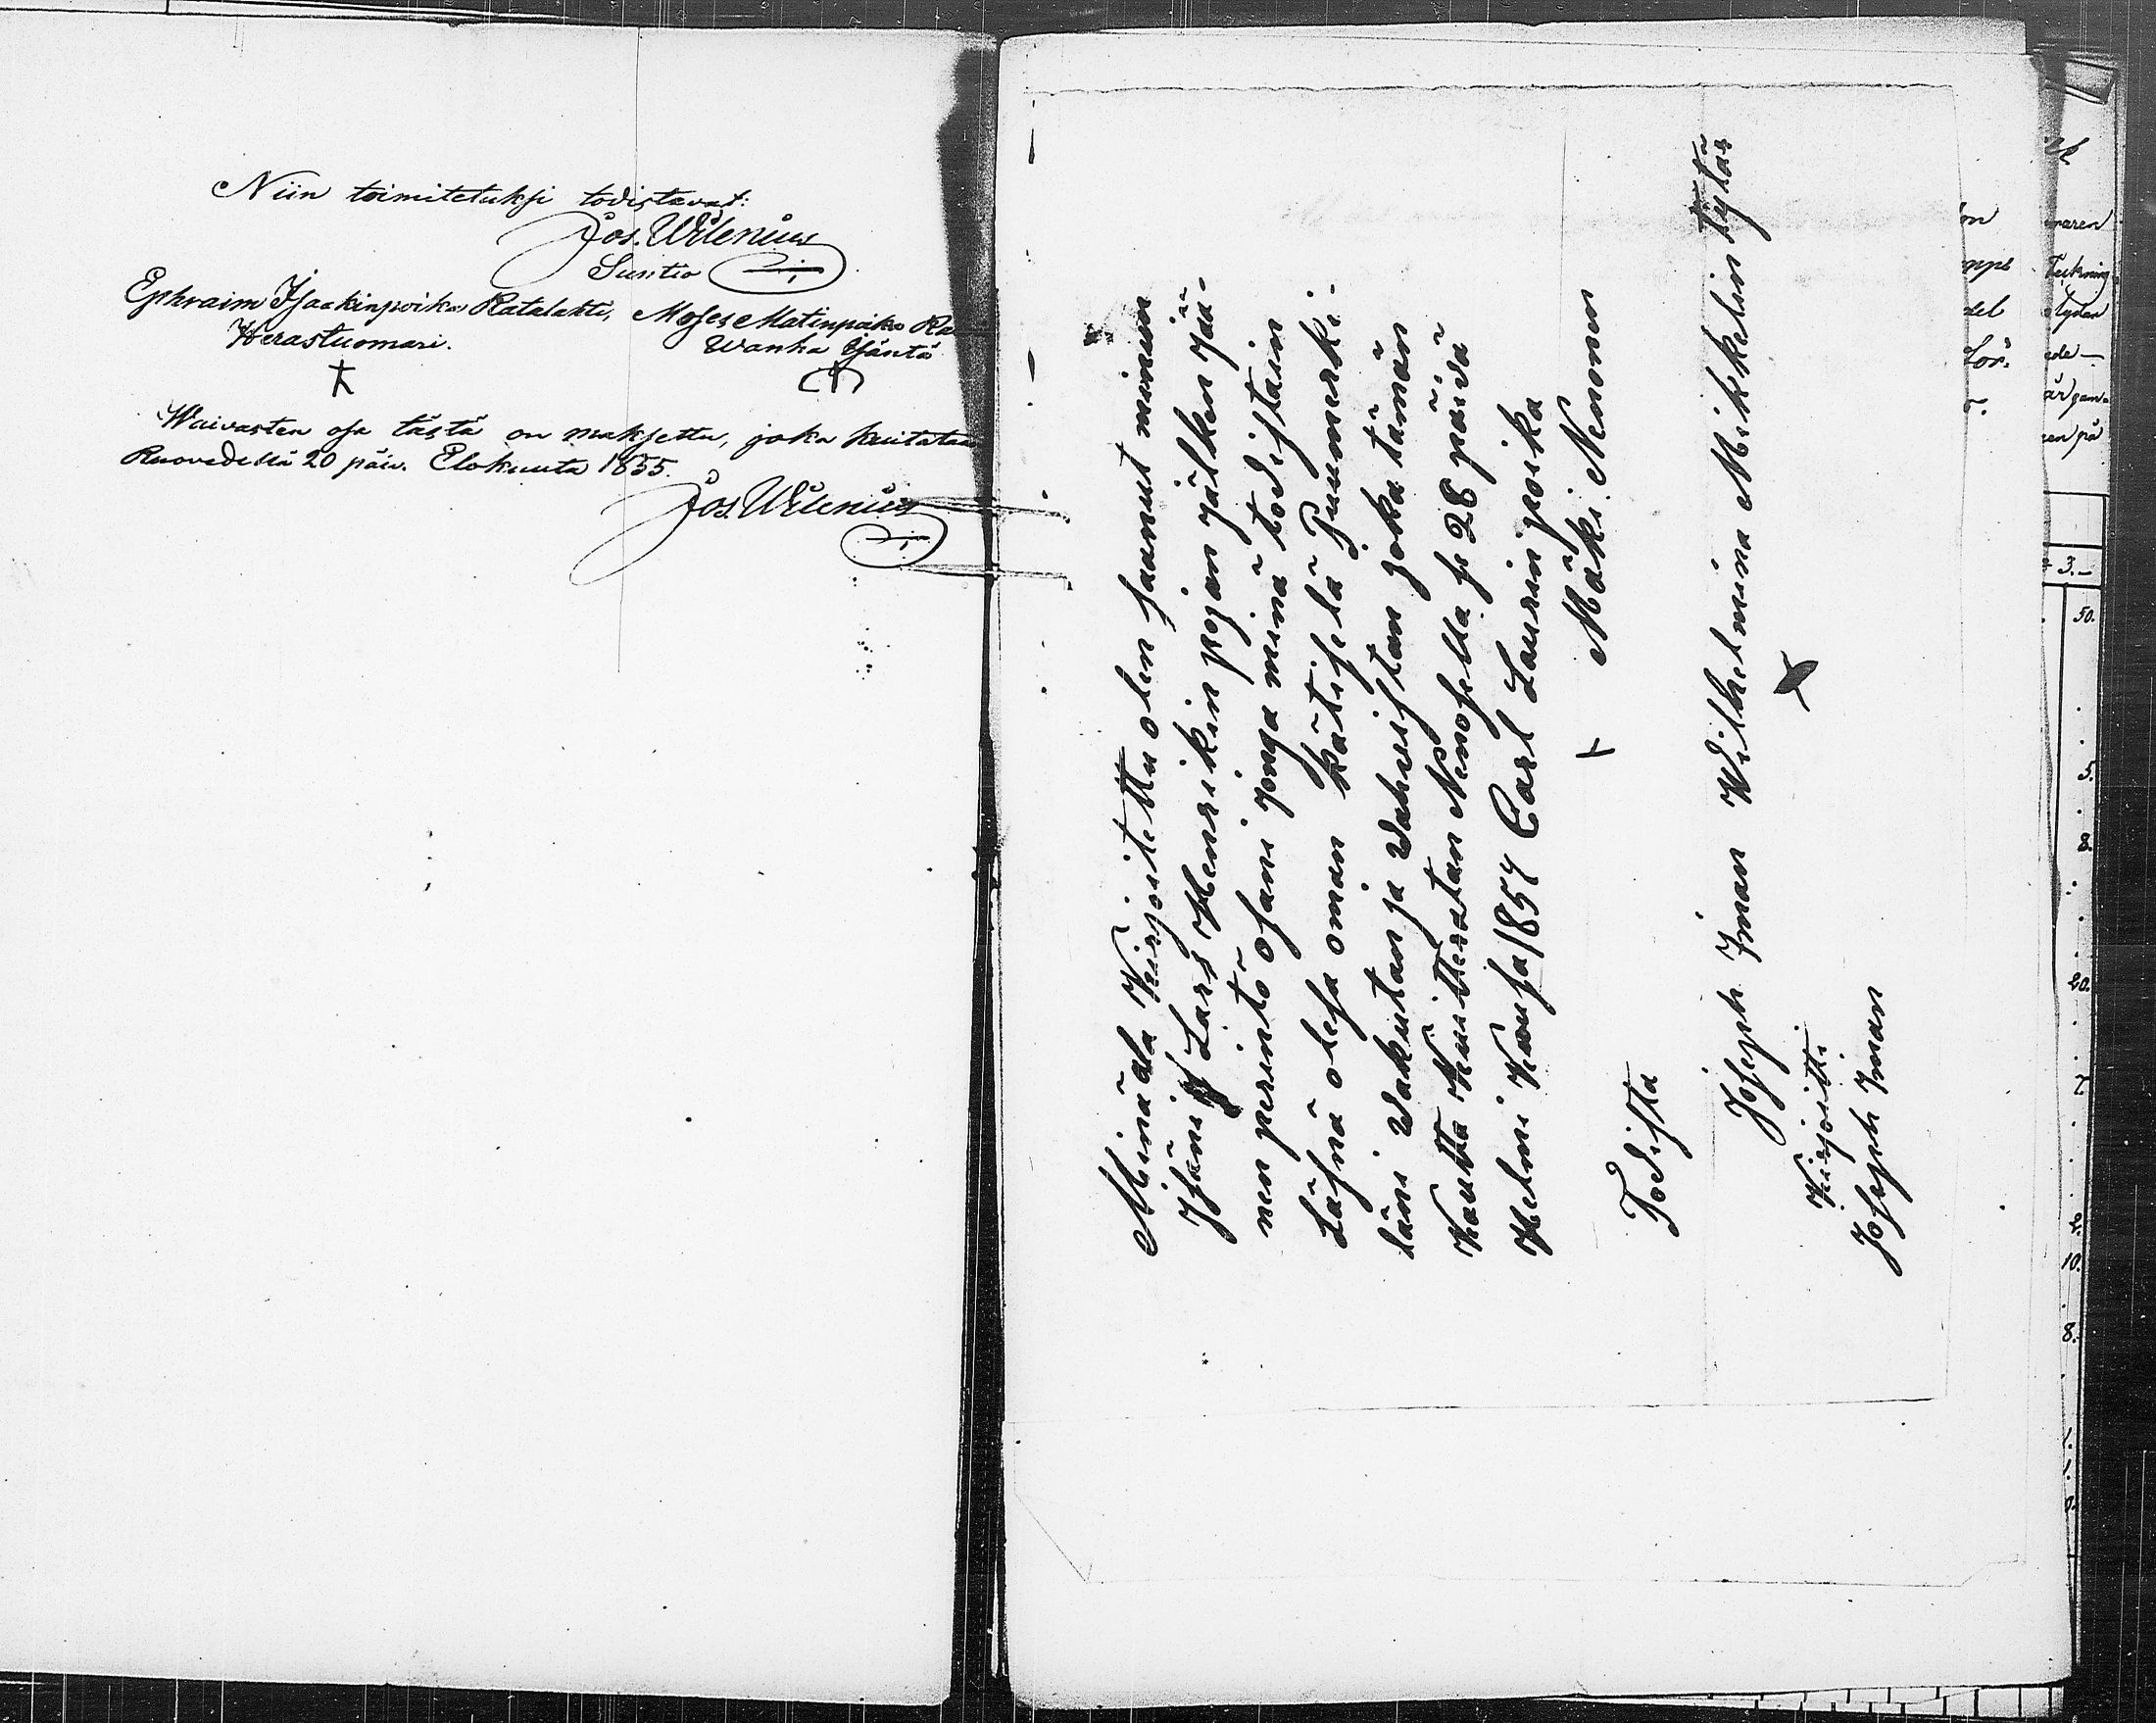 Niin toimitetuksi todistavat:
Jos. Wilenius
Suntio
Ephraim Isaakinpoika Ratalahti, Moses Matinpoika Ra
Herastuomari. Wanha Isäntä
Waivasten osa tästä on maksettu, joka kuitataan
Ruovedellä 20 päiv. Elokuuta 1855.
Jos. Wilenius
Minä ala Kirjoitettu olen saanut minun
Isäni Lars Henrikin pojan jälken jää-
nen perintö osani jonga minä todistain
Läsnä olesa oman Kätiselä Puumerki-
läni Wakuutan ja Wahvistan joka tämän
Kautta Kuitteratan Nenosella se 28 päivä
Helmi Kuusa 1857 Carl Laurin poika
Mäki Nenonen
Todista
Joseph Inian Wilhelmina Mikkelin tytär
Kirjoitti
Joseph Inian
on
del
Lör.
maren
Teckning
Stydan
3.-
50.
5.
8.
20.
7.
2.
10.
8.